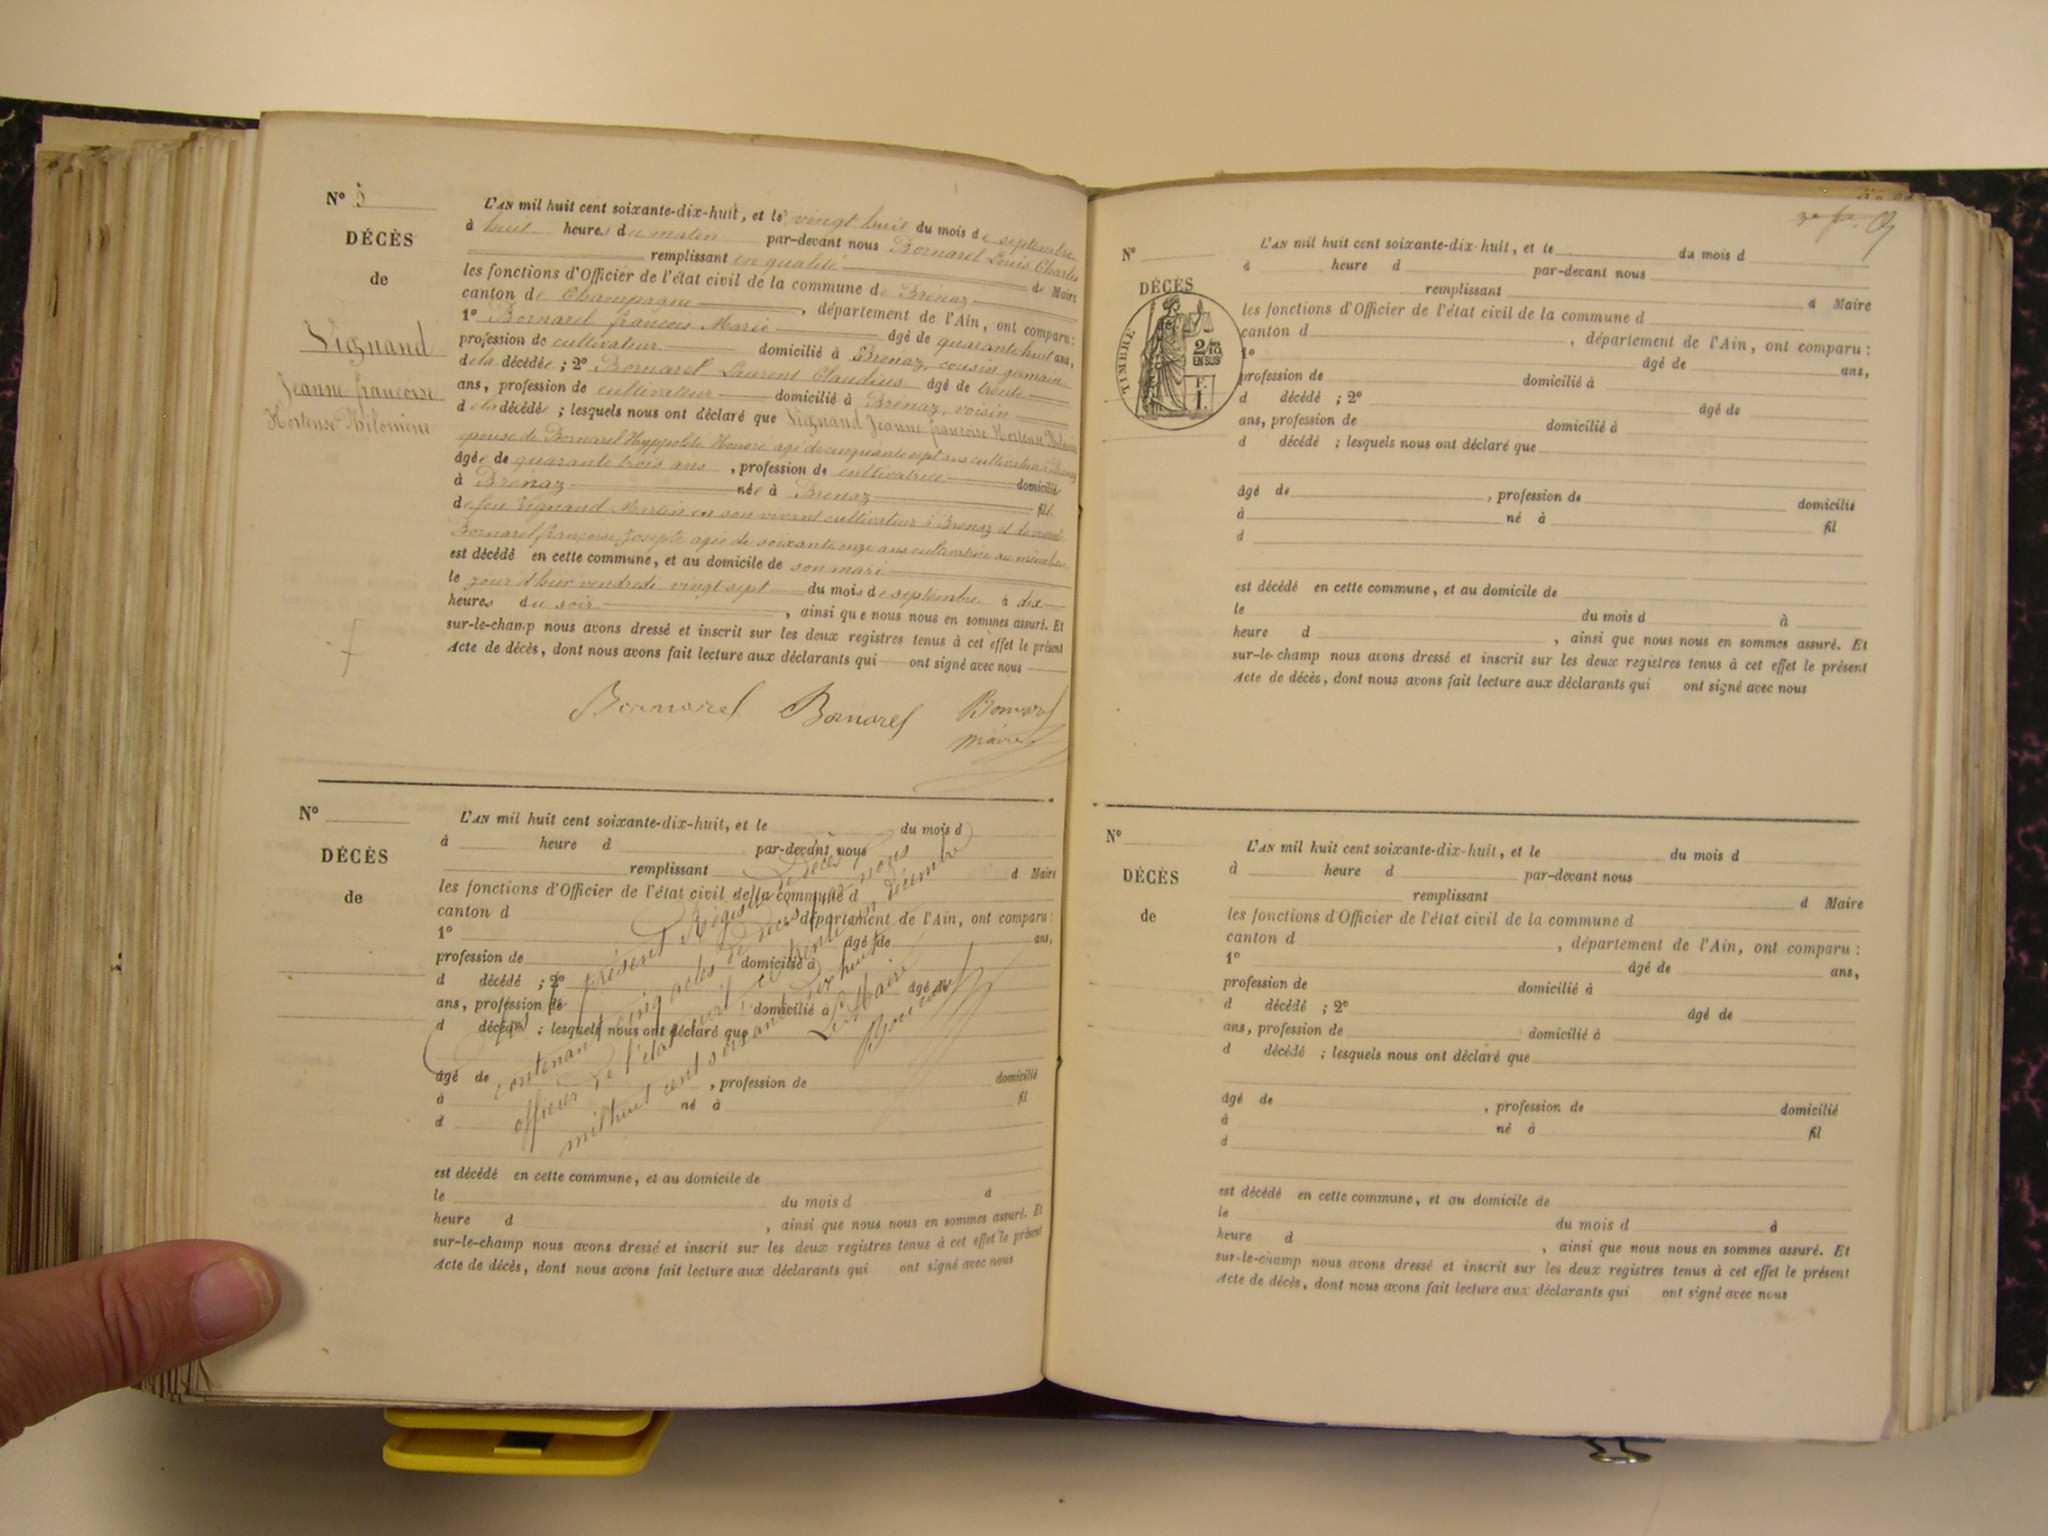 N° 5
DÉCÈS
de
Vignand
Jeanne françoise
Hortense Philomène
L'AN mil huit cent soixante-dix-huit, et le vingt huit du mois de septembre
à huit heures du matin par-devant nous Bornarel Louis Charles
remplissant en qualité de Maire
les fonctions d'Officier de l'état civil de la commune de Brénaz
canton de Champagne, département de l'Ain, ont comparu :
1° Bornarel françois Marie âgé de quarante huit ans,
profession de cultivateur domicilié à Brénaz, cousin germain
de la décédée ; 2° Bornarel Laurent Claudius âgé de trente
ans, profession de cultivateur domicilié à Brénaz, voisin
de la décédée ; lesquels nous ont déclaré que Vignand Jeanne françoise Hortense Philomène
épouse de Bornarel Hyppolite Honoré agé de cinquante sept ans cultivateur à Brénaz
âgée de quarante trois ans, profession de cultivatrice domicilié
à Brénaz née à Brénaz fil
de feu Vignand Martin en son vivant cultivateur à Brénaz et de
Bornarel françoise Josephe agée de soixante onze ans cultivatrice au même lieu
est décédé en cette commune, et au domicile de son mari
le jour d'hier vendredi vingt sept du mois de septembre à dix
heures du soir, ainsi que nous nous en sommes assuré. Et
sur-le-champ nous avons dressé et inscrit sur les deux registres tenus à cet effet le présent
Acte de décès, dont nous avons fait lecture aux déclarants qui ont signé avec nous
Bornarel Bornarel Bornarel
maire
N°
DÉCÈS
de
L'AN mil huit cent soixante-dix-huit, et le du mois d
à heure d par-devant nous
remplissant d Maire
les fonctions d'Officier de l'état civil de la commune d
canton d département de l'Ain, ont comparu :
1° âgé de ans,
profession de domicilié à
d décédé ; 2° âgé de
ans, profession de domicilié à
d décédé ; lesquels nous ont déclaré que
âgé de , profession de domicilié
à né à fil
d
est décédé en cette commune, et au domicile de
le du mois d à
heure d , ainsi que nous nous en sommes assuré. Et
sur-le-champ nous avons dressé et inscrit sur les deux registres tenus à cet effet le présent
Acte de décès, dont nous avons fait lecture aux déclarants qui ont signé avec nous
présent Registre de Décès
contenant cinq actes de Décès par nous
officier de l'état civil décembre
mil huit cent soixante dix huit
Le Maire
Bornarel
N°
DÉCÈS
TIMBRE
2/10
EN SUS
F.
I.
L'AN mil huit cent soixante-dix-huit, et le du mois d
à heure d par-devant nous
remplissant d Maire
les fonctions d'Officier de l'état civil de la commune d
canton d , département de l'Ain, ont comparu :
1° âgé de ans,
profession de domicilié à
d décédé ; 2° âgé de
ans, profession de domicilié à
d décédé ; lesquels nous ont déclaré que
âgé de , profession de domicilié
à né à fil
d
est décédé en cette commune, et au domicile de
le du mois d à
heure d , ainsi que nous nous en sommes assuré. Et
sur-le-champ nous avons dressé et inscrit sur les deux registres tenus à cet effet le présent
Acte de décès, dont nous avons fait lecture aux déclarants qui ont signé avec nous
N°
DÉCÈS
de
L'AN mil huit cent soixante-dix-huit, et le du mois d
à heure d par-devant nous
remplissant d Maire
les fonctions d'Officier de l'état civil de la commune d
canton d , département de l'Ain, ont comparu :
1° âgé de ans,
profession de domicilié à
d décédé ; 2° âgé de
ans, profession de domicilié à
d décédé ; lesquels nous ont déclaré que
âgé de , profession de domicilié
à né à fil
d
est décédé en cette commune, et au domicile de
le du mois d à
heure d , ainsi que nous nous en sommes assuré. Et
sur-le-champ nous avons dressé et inscrit sur les deux registres tenus à cet effet le présent
Acte de décès, dont nous avons fait lecture aux déclarants qui ont signé avec nous